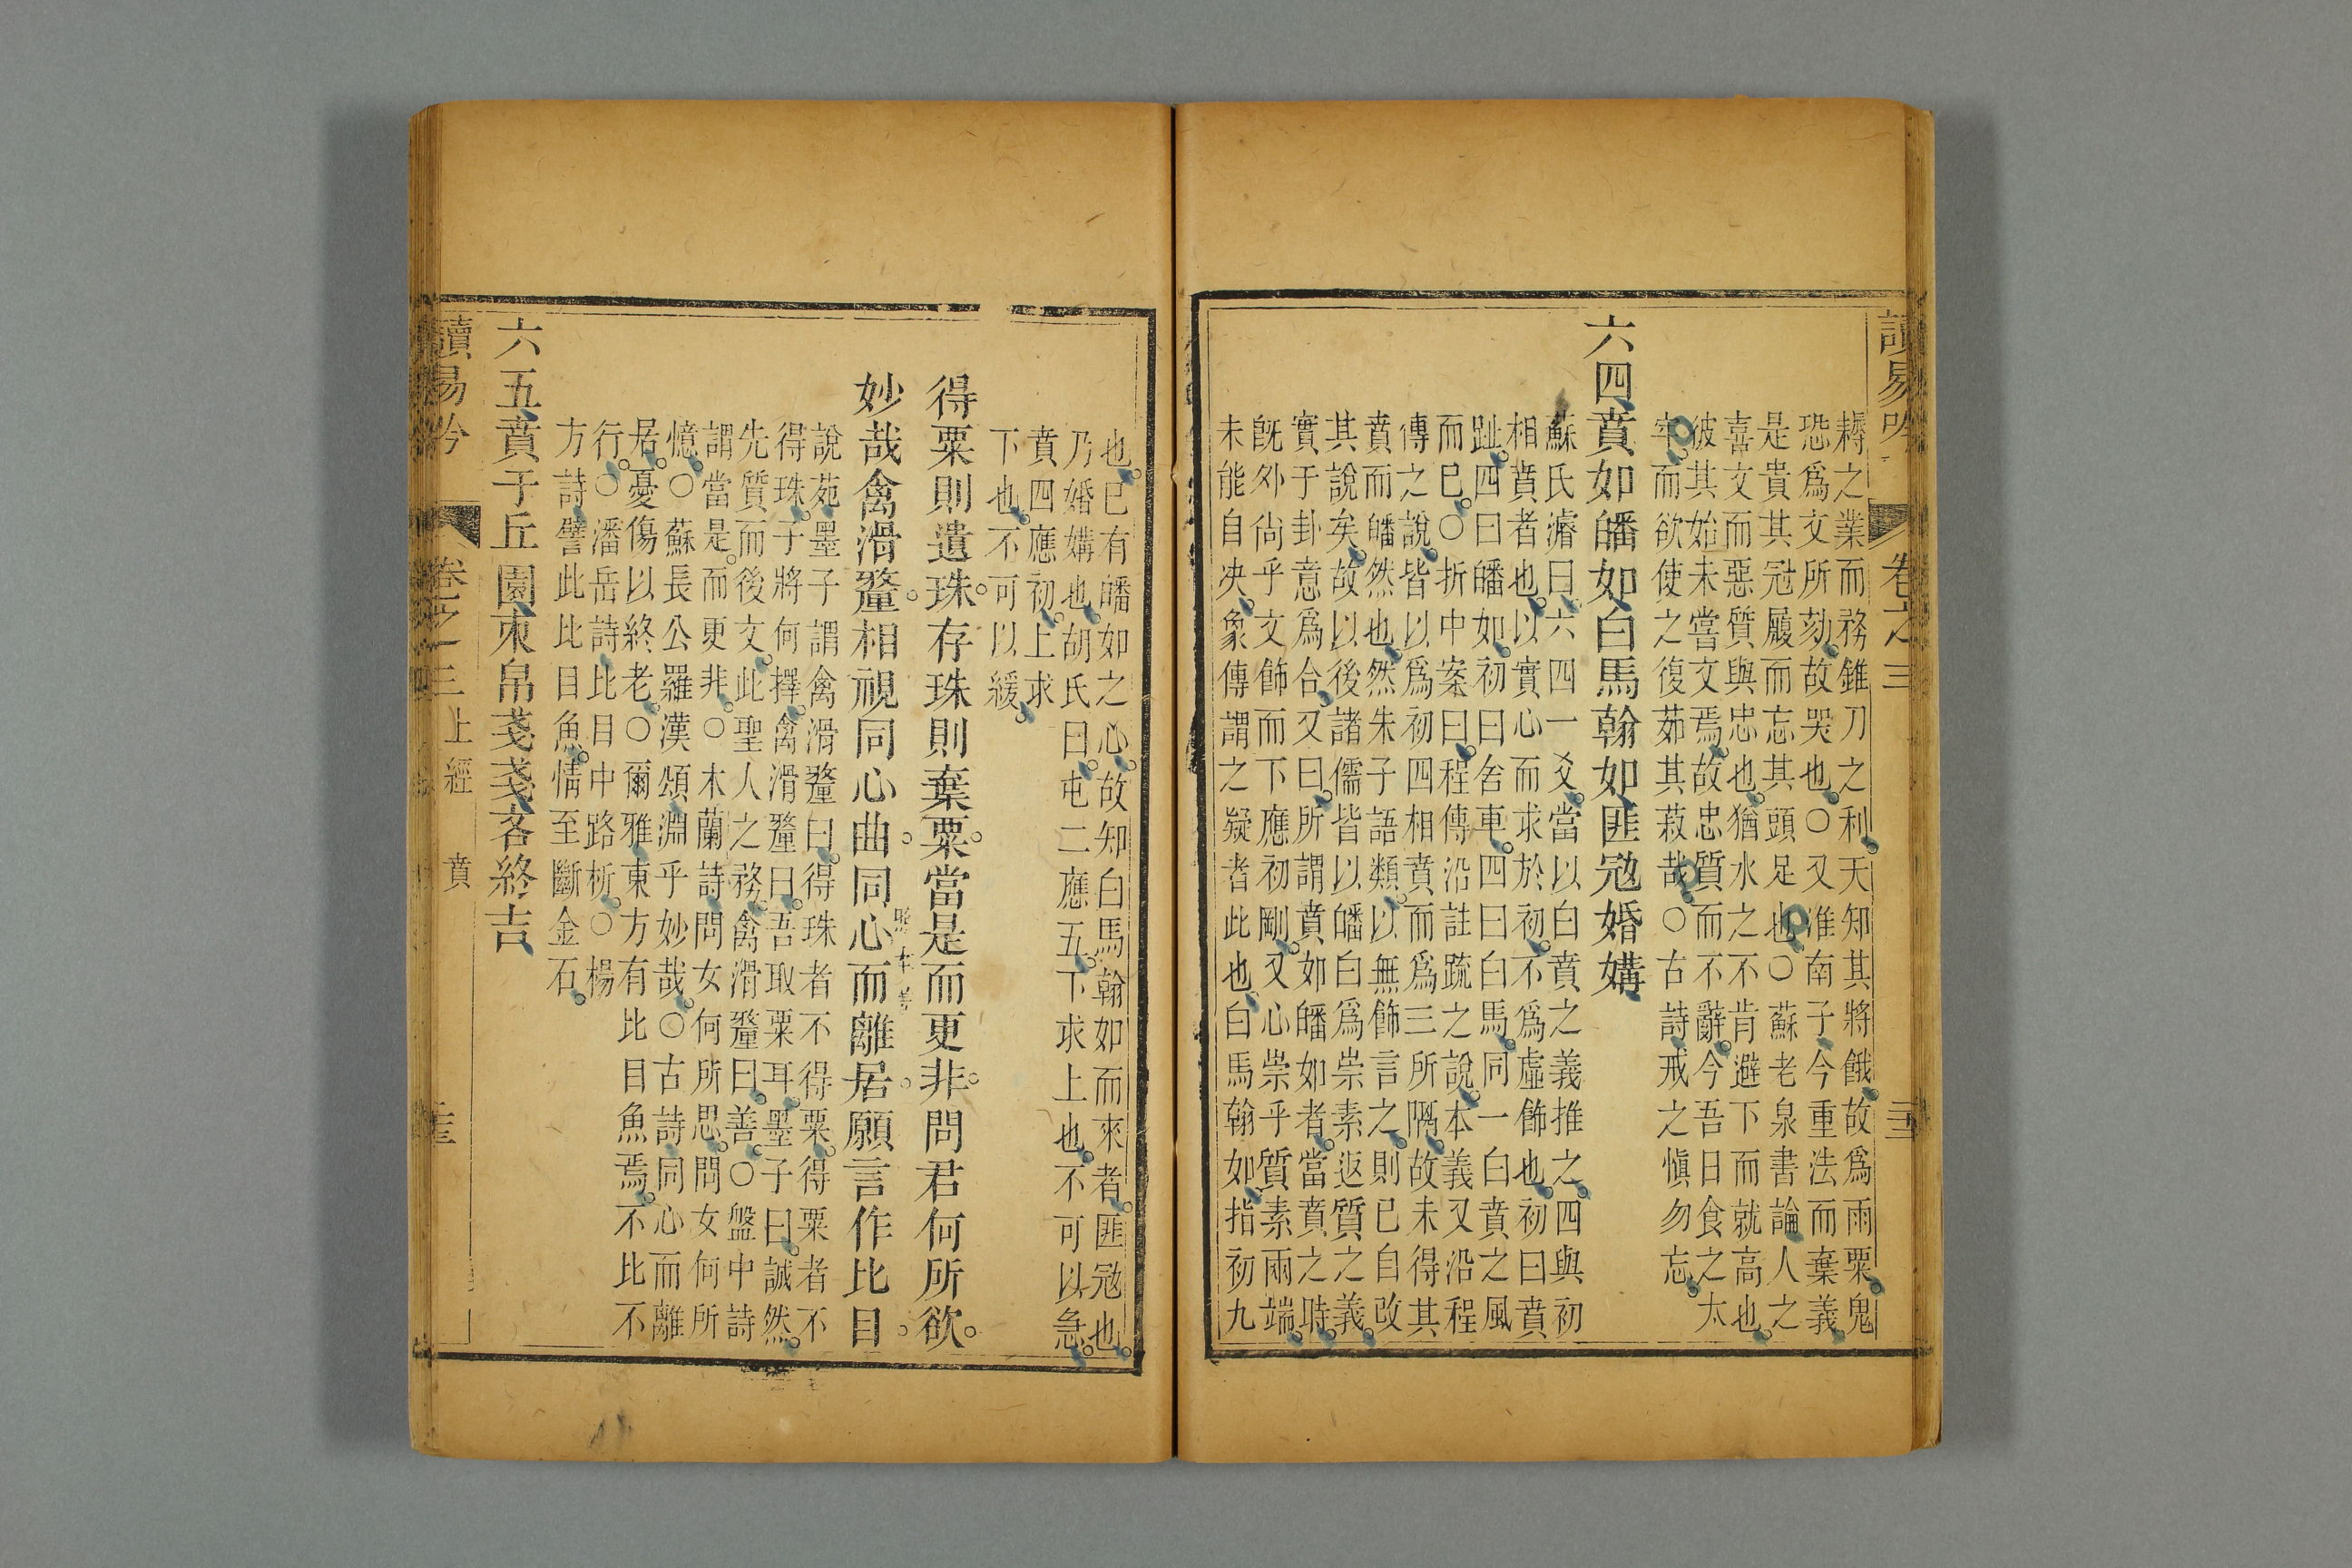 讀易吟
卷之三
耨之業而務錐刀之利天知其將餓故爲雨粟鬼
恐爲文所劾故哭也○又淮南子今重法而棄義
是貴其冠履而忘其頭足也○蘇老泉書論人之
喜文而惡質與忠也猶水之不肯避下而就高也
彼其始未嘗文焉故忠質而不辭今吾日食之太
牢而欲使之復茹其菽哉○古詩戒之愼勿忘
六四賁如皤如白馬翰如匪寇婚媾
蘇氏濬曰六四一爻當以白賁之義推之四與初
相賁者也以實心而求於初不爲虛飾也初曰賁
趾四曰皤如初曰舍車四曰白馬同一白賁之風
而已○折中案曰程傳沿註疏之說本義又沿程
傳之說皆以爲初四相賁而爲三所隔故未得其
賁而皤然也然朱子語類以無飾言之則已自改
其說矣故以後諸儒皆以皤白爲崇素返質之義
實于卦意爲合又曰所謂賁如皤如者當賁之時
旣外尙乎文飾而下應初剛又心崇乎質素兩端
未能自决象傳謂之疑者此也白馬翰如指初九
也巳有皤如之心故知白馬翰如而來者匪寇也
乃婚媾也胡氏曰屯二應五下求上也不可以急
賁四應初上求
下也不可以緩
得粟則遺珠存珠則棄粟當是而更非問君何所欲
妙哉禽滑釐相視同心曲同心而離居願言作比目
說苑墨子謂禽滑釐曰得珠者不得粟得粟者不
得珠子將何擇禽滑釐曰吾取粟耳墨子曰誠然
先質而後文此聖人之務禽滑釐曰善○盤中詩
謂當是而更非○木蘭詩問女何所思問女何所
憶○蘇長公羅漢頌淵乎妙哉○古詩同心而離
居憂傷以終老○爾雅東方有比目魚焉不比不
行○潘岳詩比目中路析○楊
方詩譬此比目魚情至斷金石
六五賁于丘園束帛戔戔吝終吉
讀易吟
卷之三
上經
賁